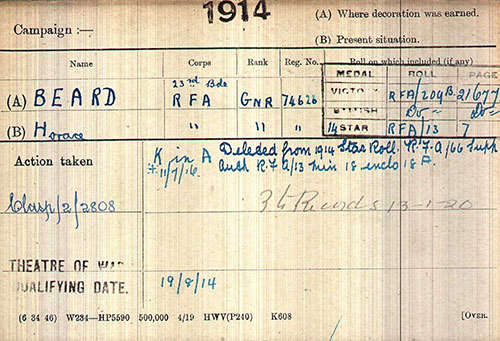 1914
(A) Where decoration was earned.
Campaign :—
(B) Present situation.
Name Corps Rank Reg. No. Roll on which included (if any)
MEDAL ROLL PAGE
23rd Bde
(A) BEARD RFA GNR 74626 VICTORY RFA/209B 21677
BRITISH Do= Do=
(B) Horace " " " 14 STAR RFA/13 7
Action taken K in A Deleded from 1914 Star Roll. R.F.A/66 Supp
11/7/16. Auth R.F.A/13 Min 18 enclo 18 A.
Clasp/2/2808 Records 13-1-20
THEATRE OF WAR
QUALIFYING DATE. 19/8/14
(6 34 46) W234—HP5590 500,000 4/19 HWV(P240) K608 [OVER.